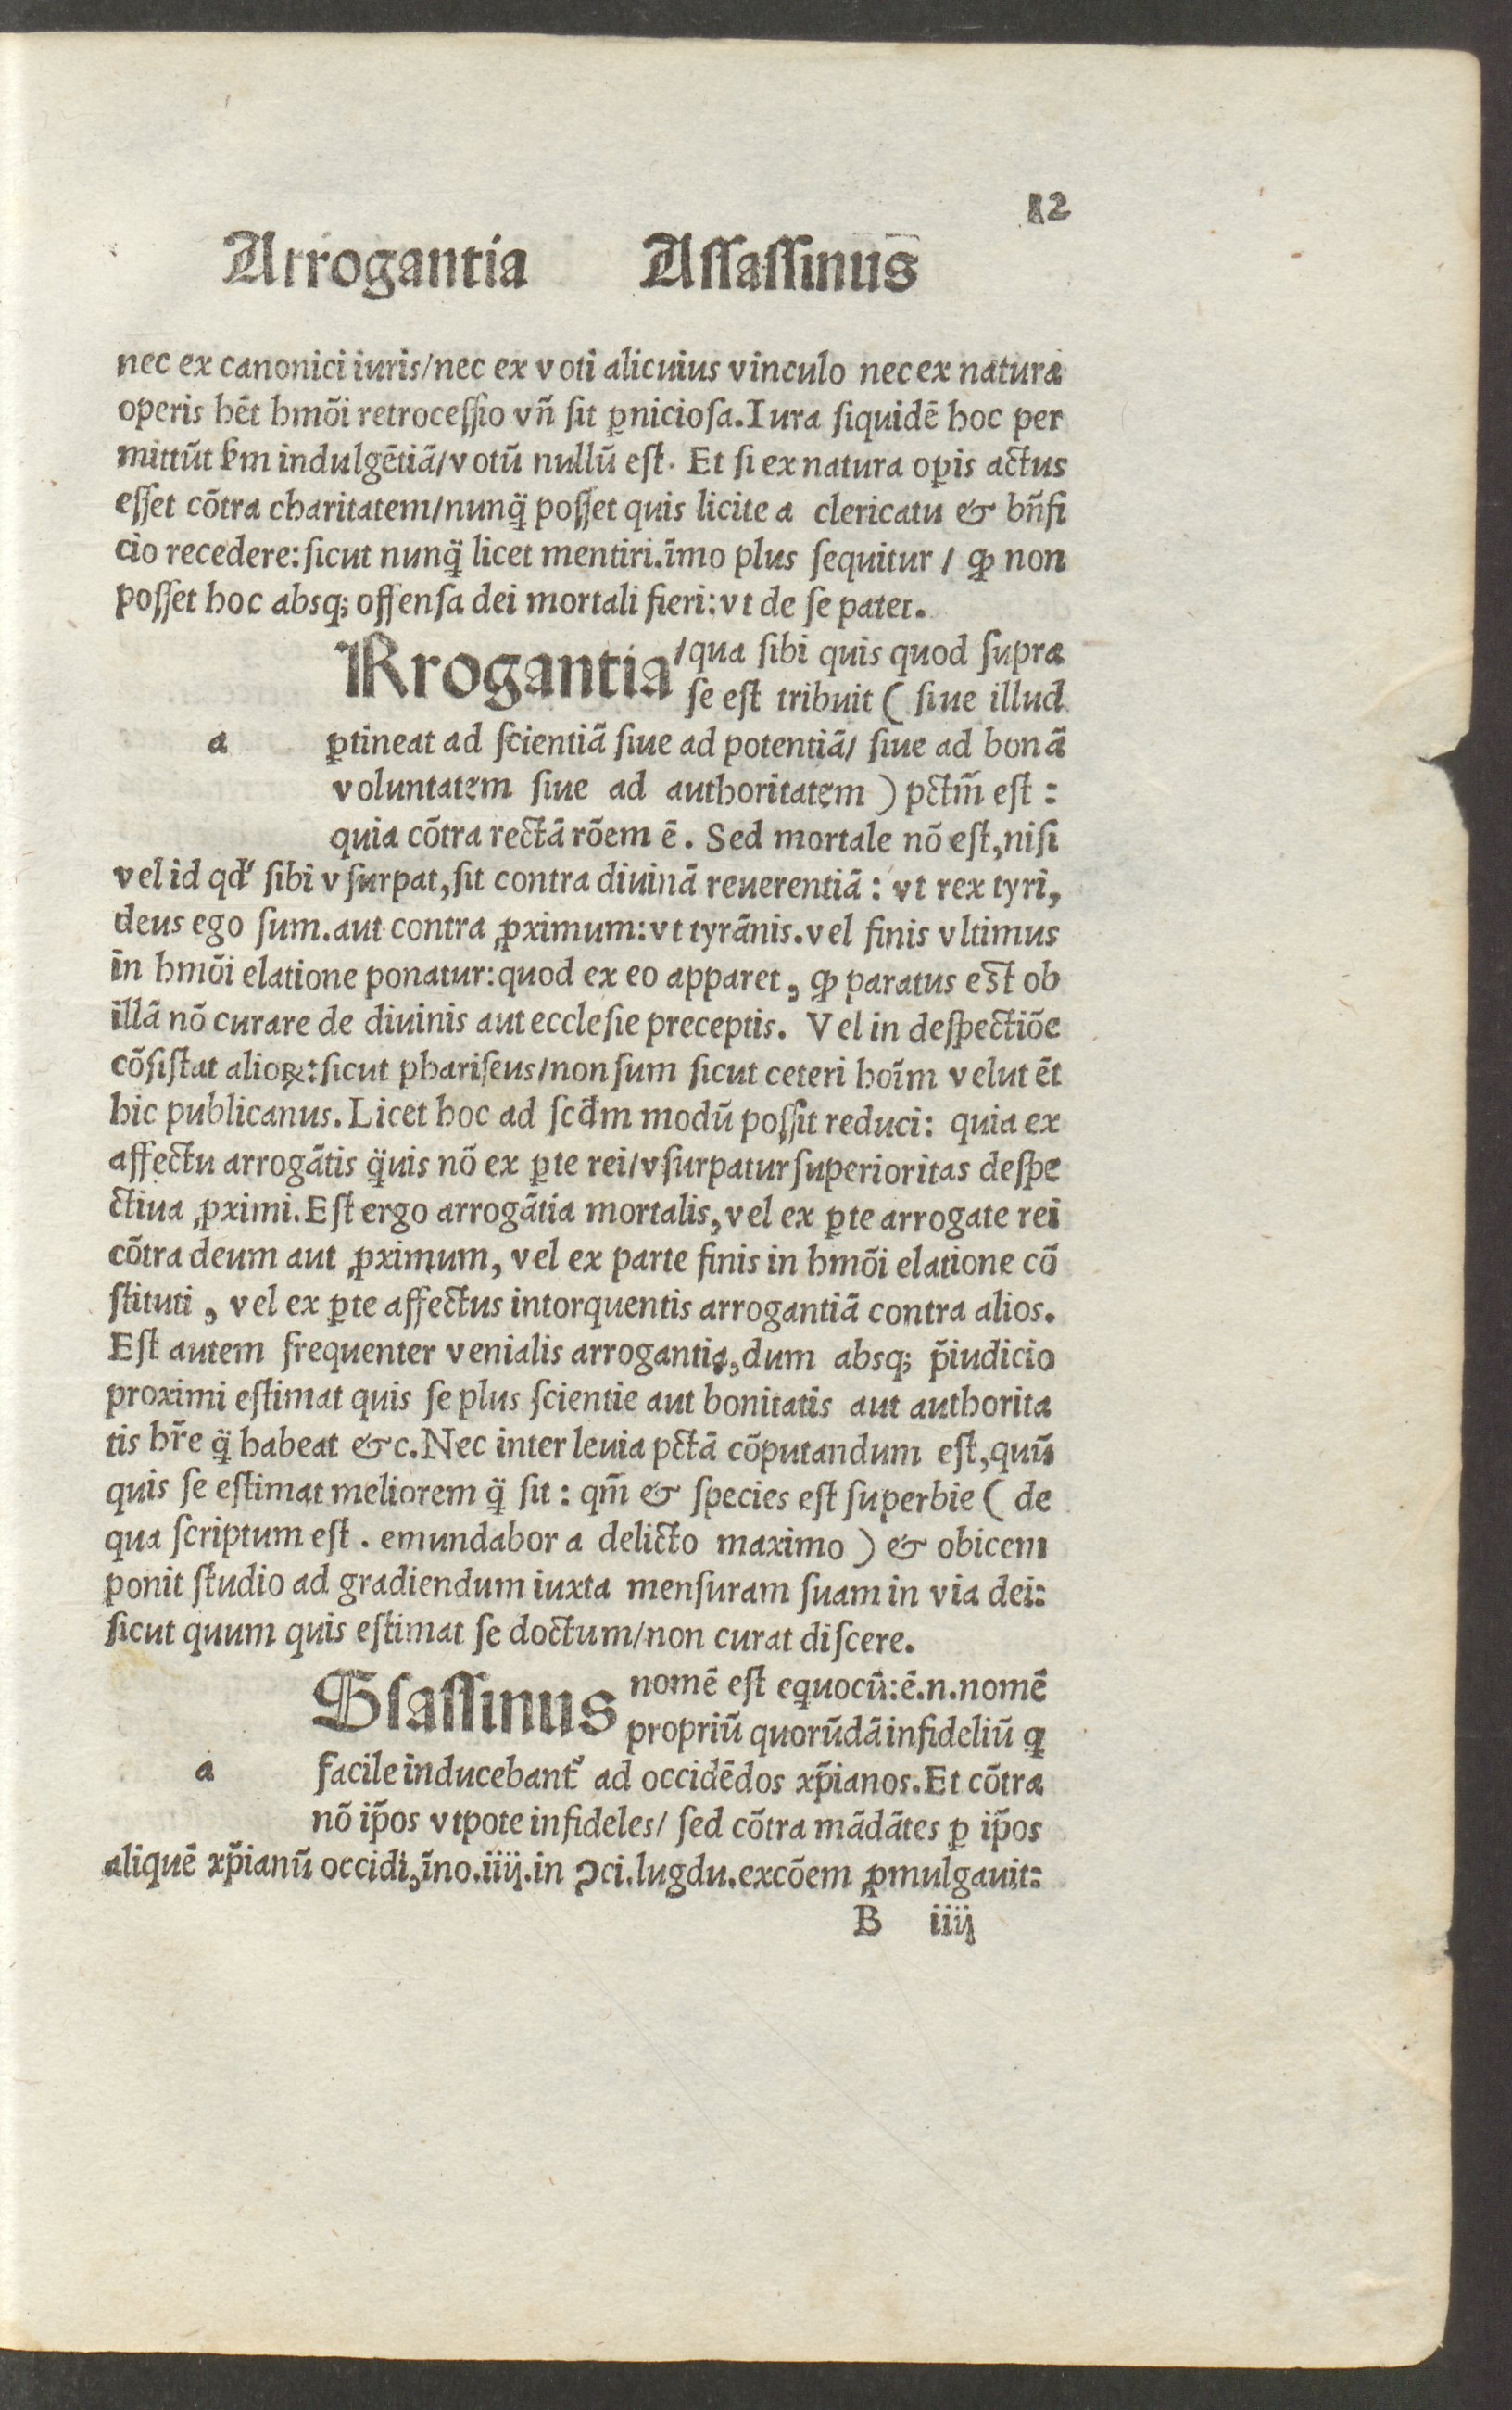 12
Arrogantia Assassinus
nec ex canonici iuris/nec ex voti alicuius vinculo nec ex natura
operis hēt hmōi retrocessio vñ sit ꝑniciosa. Iura siquidē hoc per
mittūt ẜm indulgētiā/votū nullū est. Et si ex natura oꝑis actus
esset cōtra charitatem/nunq̈ posset quis licite a clericatu & bñfi
cio recedere: sicut nunq̈ licet mentiri. īmo plus sequitur / ꝙ non
posset hoc absqꝫ offensa dei mortali fieri: vt de se patet.
ARrogantia /qua sibi quis quod supra
se est tribuit ( siue illud
a ꝑtineat ad scientiā siue ad potentiā/ siue ad bonā
voluntatem siue ad authoritatem ) pctm̄ est :
quia cōtra rectā rōem ē. Sed mortale nō est, nisi
vel id qd' sibi vsurpat, sit contra diuinā reuerentiā : vt rex tyri,
deus ego sum. aut contra ꝓximum: vt tyrānis. vel finis vltimus
in hmōi elatione ponatur: quod ex eo apparet, ꝙ paratus est ob
illā nō curare de diuinis aut ecclesie preceptis. Vel in despectiōe
cōsistat alioꝝ: sicut phariseus/non sum sicut ceteri hoīm velut ēt
hic publicanus. Licet hoc ad scd̄m modū possit reduci: quia ex
affectu arrogātis q̈uis nō ex ꝑte rei/vsurpatur superioritas despe
ctiua ꝓximi. Est ergo arrogātia mortalis, vel ex ꝑte arrogate rei
cōtra deum aut ꝓximum, vel ex parte finis in hmōi elatione cō
stituti, vel ex ꝑte affectus intorquentis arrogantiā contra alios.
Est autem frequenter venialis arrogantia, dum absqꝫ p̄iudicio
proximi estimat quis se plus scientie aut bonitatis aut authorita
tis hr̄e q̈ habeat &c. Nec inter leuia pctā cōputandum est, quū
quis se estimat meliorem q̈ sit : qm̄ & species est superbie ( de
qua scriptum est . emundabor a delicto maximo ) & obicem
ponit studio ad gradiendum iuxta mensuram suam in via dei:
sicut quum quis estimat se doctum/non curat discere.
ASsassinus nomē est equocū: ē.n. nomē
propriū quorūdā infideliū ꝗ
a facile inducebant᷑ ad occidēdos xp̄ianos. Et cōtra
nō ip̄os vtpote infideles/ sed cōtra mādātes ꝑ ip̄os
aliquē xp̄ianū occidi, īno.iiij. in ꝯci. lugdu. excōem ꝓmulgauit:
B iiij